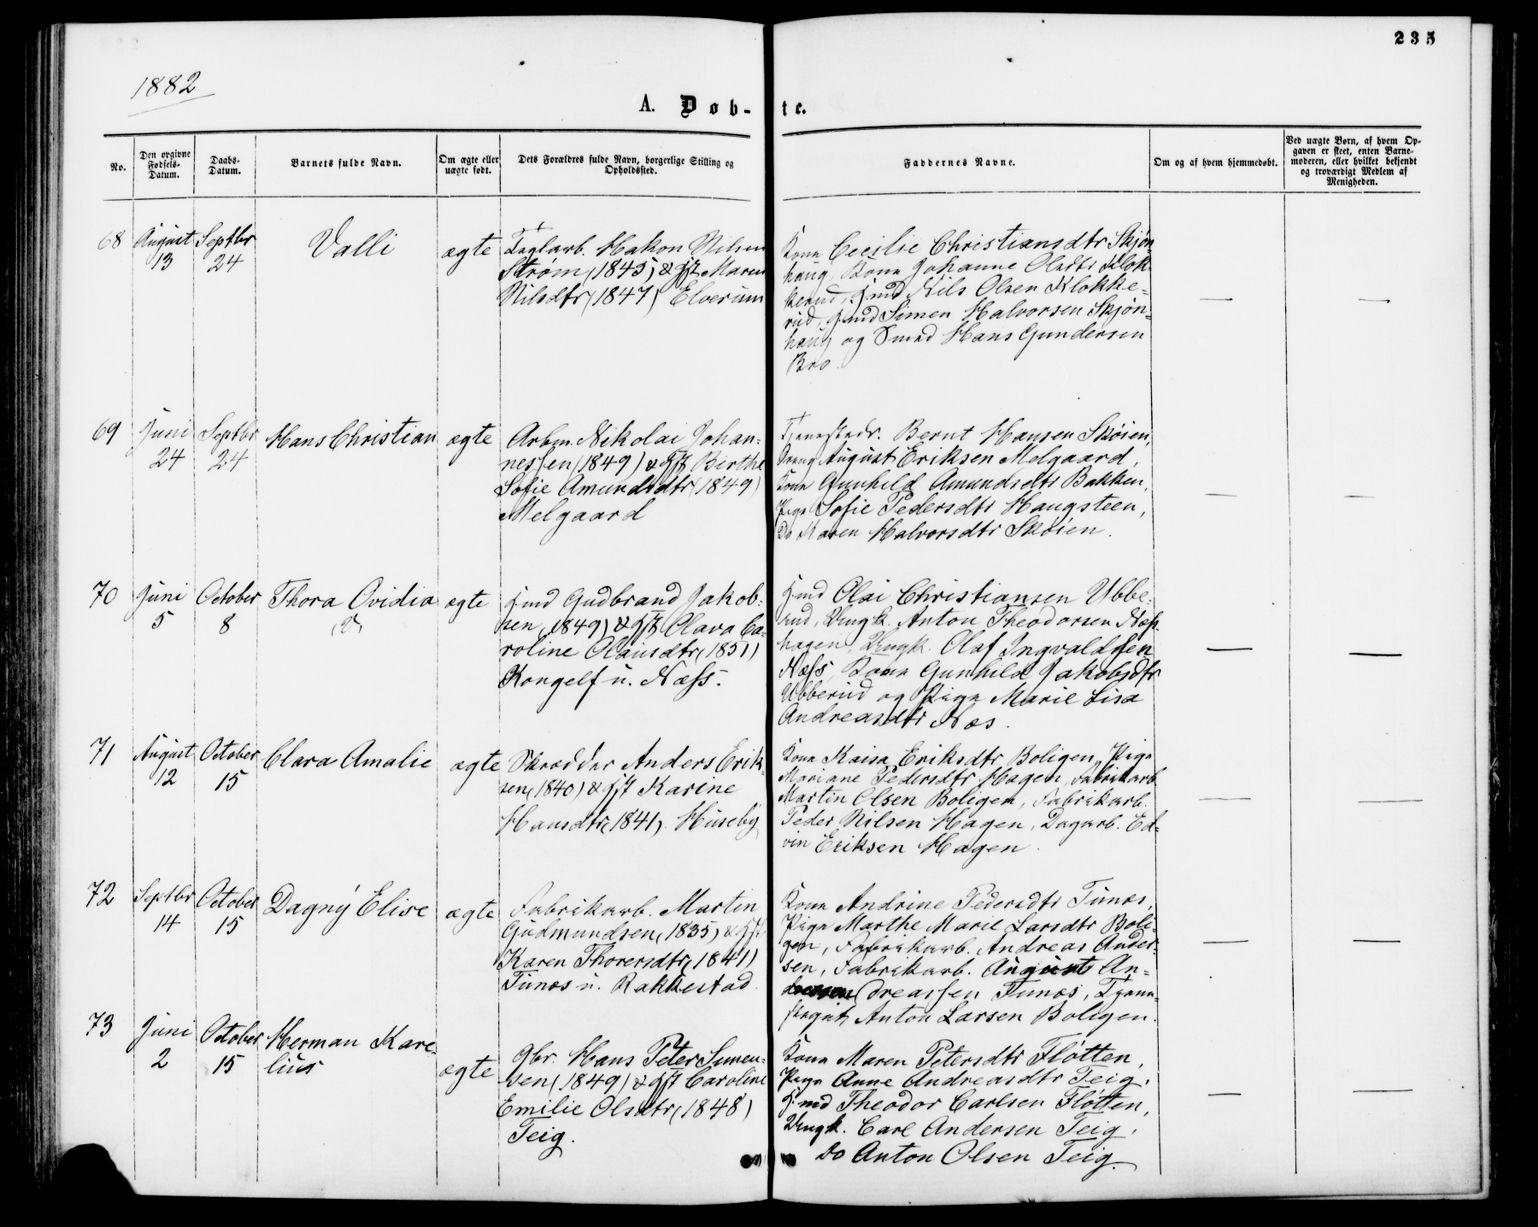 235
1882
A. Døb-te.
No.
Den opgivne Fødsels-Datum.
Daabs-Datum.
Barnets fulde Navn.
Om ægte eller uægte født.
Dets Forældres fulde Navn, borgerlige Stilling og Opholdssted.
Faddernes Navne.
Om og af hvem hjemmedøbt.
Ved uægte Børn, af hvem Opgaven er skeet, enten Barnemoderen, eller hvilket bekjendt og troværdigt Medlem af Menigheden.
68
August 13
Septbr 24
Valli
ægte
Teglarb. Hakon Nilsen
Strøm (1845) & Gift Maren
Nilsdtr (1847) Elverum
Kone Cecilie Christiansdtr Skjøn-
haug, Kone Johanne Olsdtr Klok-
kerud, Gmd Nils Olsen Klokke-
rud, Gmd Simen Halvorsen Skjøn-
haug og Smed Hans Gundersen
Bro.
69
Juni 24
Septbr 24
Hans Christian
ægte
Arbm. Nikolai Johan-
nessen (1849) & Gift Birthe
Sofie Amundsdtr (1849)
Melgaard
Tjenestedr. Bernt Hansen Skøien,
Dreng August Eriksen Melgaard,
Kone Gunhild Amundsdtr Bakken,
Pige Sofie Pedersdtr Haugsteen,
Do Maren Halvorsdtr Skøien.
70
Juni 5
October 8
Thora Ovidia
(v)
ægte
Gmd Gudbrand Jakob-
sen (1849) & Gift Olava Ca-
roline Olausdtr (1851)
Kongelf u. Næss.
Gmd Olai Christiansen Ubbe-
rud, Ungk. Anton Theodorsen Næs-
hagen, Ungk. Olaf Ingvaldsen
Næss, Kone Gunhild Jakobsdtr
Ubberud og Pige Marie Lisa
Andreasdtr Næs.
71
August 12
October 15
Clara Amalie
ægte
Skrædder Anders Erik-
sen (1840) & Gift Karine
Hansdtr (1841) Huseby
Kone Kaisa Eriksdtr Boligen, Pige
Mariane Pedersdtr Hagen, Fabrikarb.
Martin Olsen Boligen, Fabrikarb.
Peder Nilsen Hagen, Dagarb. Ed-
vin Eriksen Hagen.
72
Septbr 14
October 15
Dagny Elise
ægte
Fabrikarb. Martin
Gudmundsen (1835) & Gift
Karen Thorersdtr (1841)
Tunæs u. Rakkestad
Kone Andrine Pedersdtr Tunæs,
Pige Marthe Marie Larsdtr Boli-
gen, Fabrikarb. Andreas Ander-
sen, Fabrikarb. August An-
dreassen Tunæs, Tjene-
stegut Anton Larsen Boligen.
73
Juni 2
October 15
Herman Kare-
lius
ægte
Gbr. Hans Peter Simen-
sen (1849) & Gift Caroline
Emilie Olsdtr (1848)
Teig.
Kone Maren Petersdtr Fløtten,
Pige Anne Andreasdtr Teig,
Gmd Theodor Carlsen Fløtten,
Ungk. Carl Andersen Teig,
Do Anton Olsen Teig.